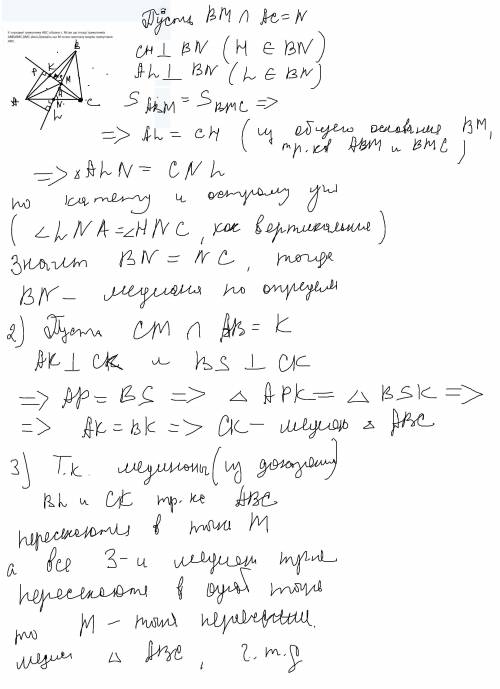 Пусть BM ∩ AC = N
CH ⊥ BN (H ∈ BN)
AL ⊥ BN (L ∈ BN)
S ABM = S BMC =>
=> AL = CH (из общего основания BM,
тр.ка ABM и BMC)
=> △ ALN = CNL
по катету и острому угл
(∠LNA = ∠HNC, как вертикальные)
Значит BN = NC, тогда
BN – медиана по определ
2) Пусть CM ∩ AB = K
AK ⊥ CK и BS ⊥ CK
=> AP = BS => △ APK = △ BSK =>
=> AK = BK => CK – медиан △ ABC
3) Т.к. медианы (из доказан)
BL и CK тр.ка ABC
пересекаются в точке M
а все 3-и медиан
пересекаются в одной точке
то M – точка пересечения.
медиан △ ABC, ч.т.д
B
K
P
M
A
N
C
L